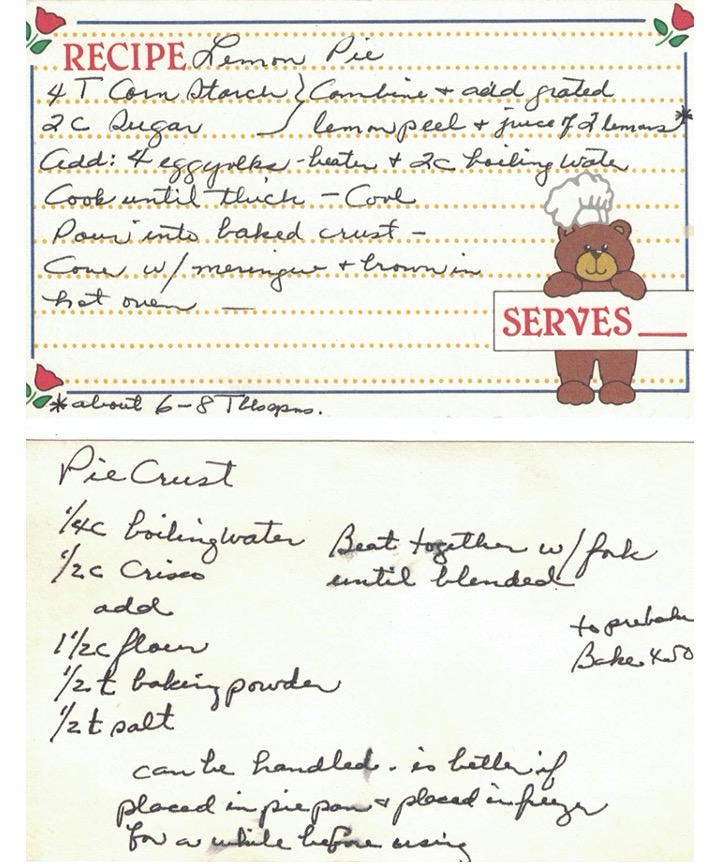 RECIPE Lemon Pie
4 T Corn Starch } Combine + add grated
2 c Sugar lemon peel + juice of 2 lemons*
Add: 4 egg yolks - beaten + 2c boiling water
Cook until thick - Cool
Pour into baked crust -
Cover w/ meringue + brown in
hot oven —
SERVES
*about 6-8 Tbsopns.
Pie Crust
1/4c boiling water Beat together w/ fork
1/2c Crisco until blended
add
to prebake
1 1/2c flour
Bake 450
1/2 t baking powder
1/2 t salt
can be handled. is better if
placed in pie pan + placed in freezer
for a while before using